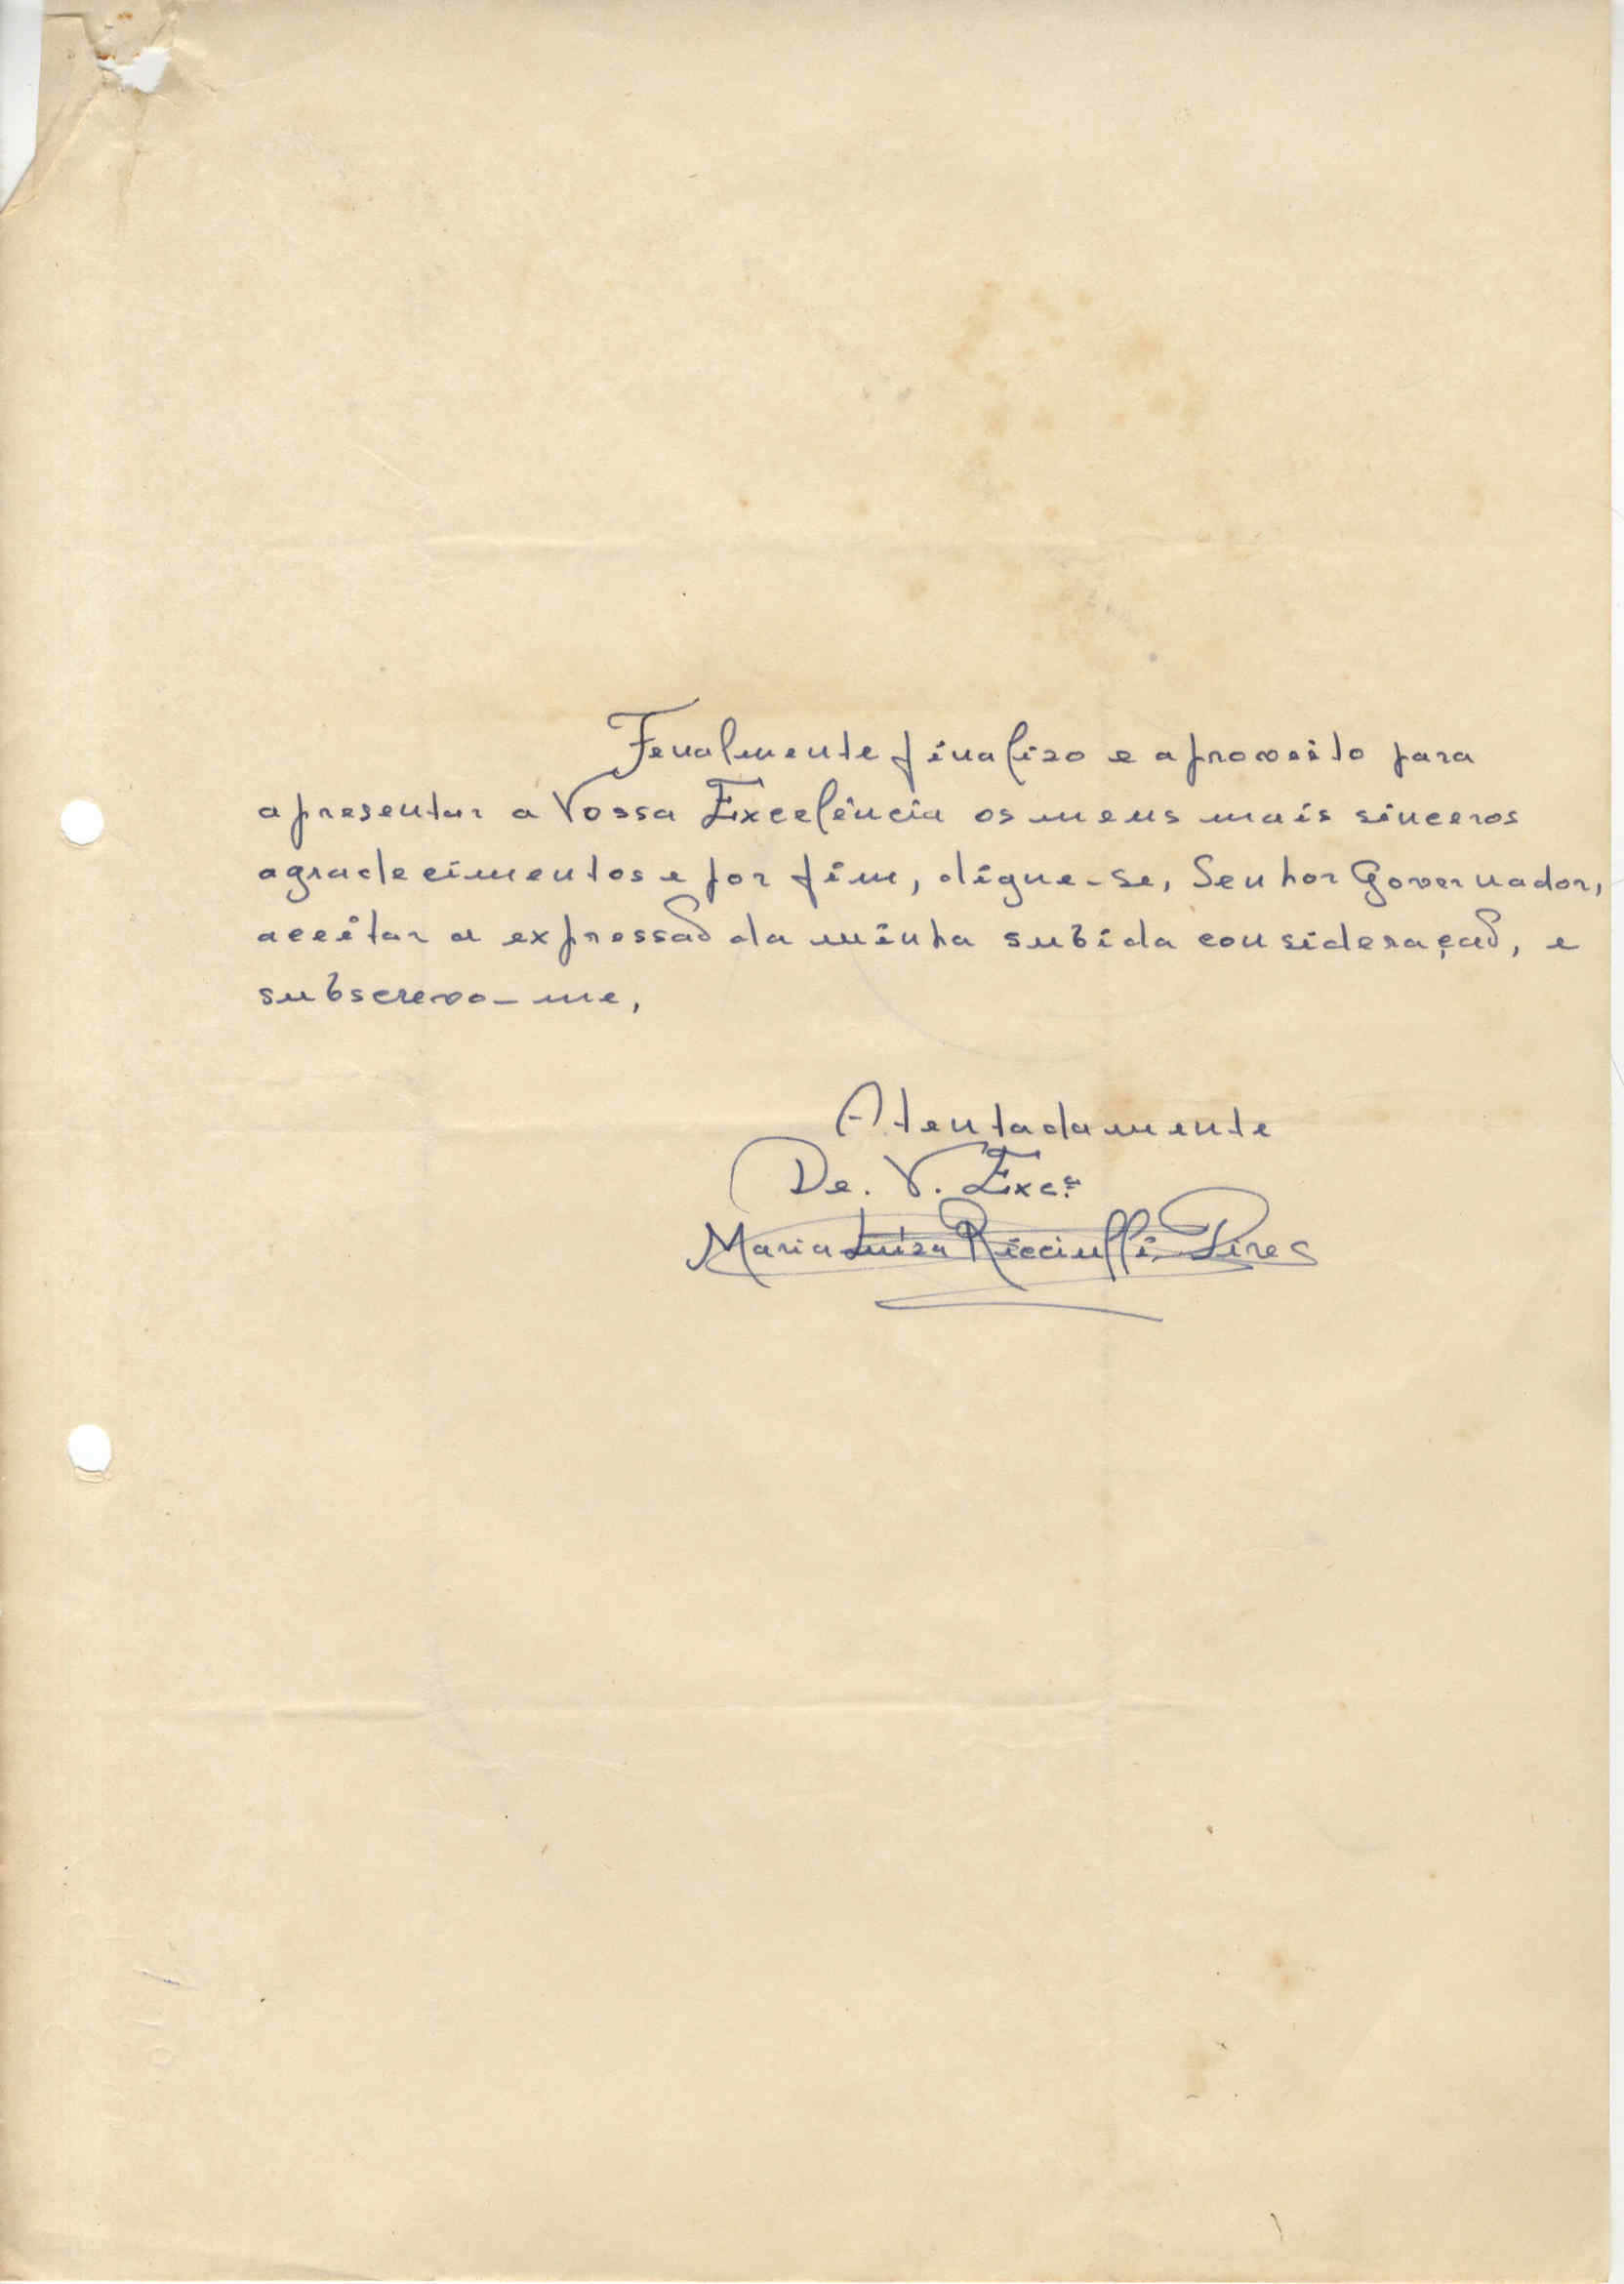 Fenalmente finalizo e aproveito para
apresentar a Vossa Excelência os meus mais sinceros
agradecimentos e por fim, digne-se, Senhor Governador,
aceitar a expressaõ da minha subida consideraçaõ, e
subscrevo-me,
Atentadamente
De. V. Excª
Maria Luiza Ricciulli Pires